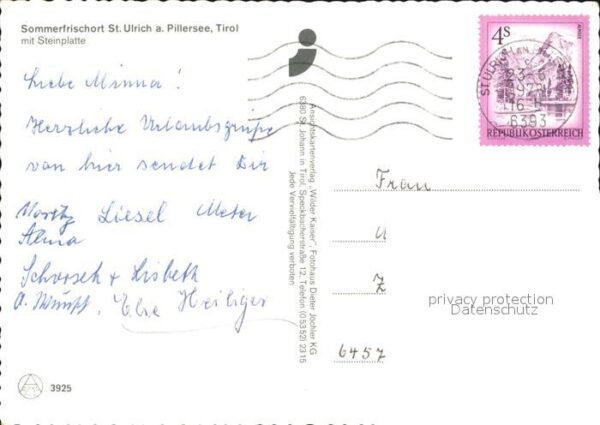 Sommerfrischort St. Ulrich a. Pillersee, Tirol
mit Steinplatte
Liebe Minna!
Herzliche Urlaubsgrüße
von hier sendet Dir
Moritz Liesel Meter
Alma
Schorsch + Lisbeth
Else Heiliger
3925
Ansichtskartenverlag „Wilder Kaiser", Fotohaus Dieter Jöchler KG
6380 St. Johann in Tirol, Speckbacherstraße 12, Telefon (05352) 2315
Jede Vervielfältigung verboten
4S
REPUBLIK ÖSTERREICH
6393
Frau
A
Z
6457
privacy protection
Datenschutz